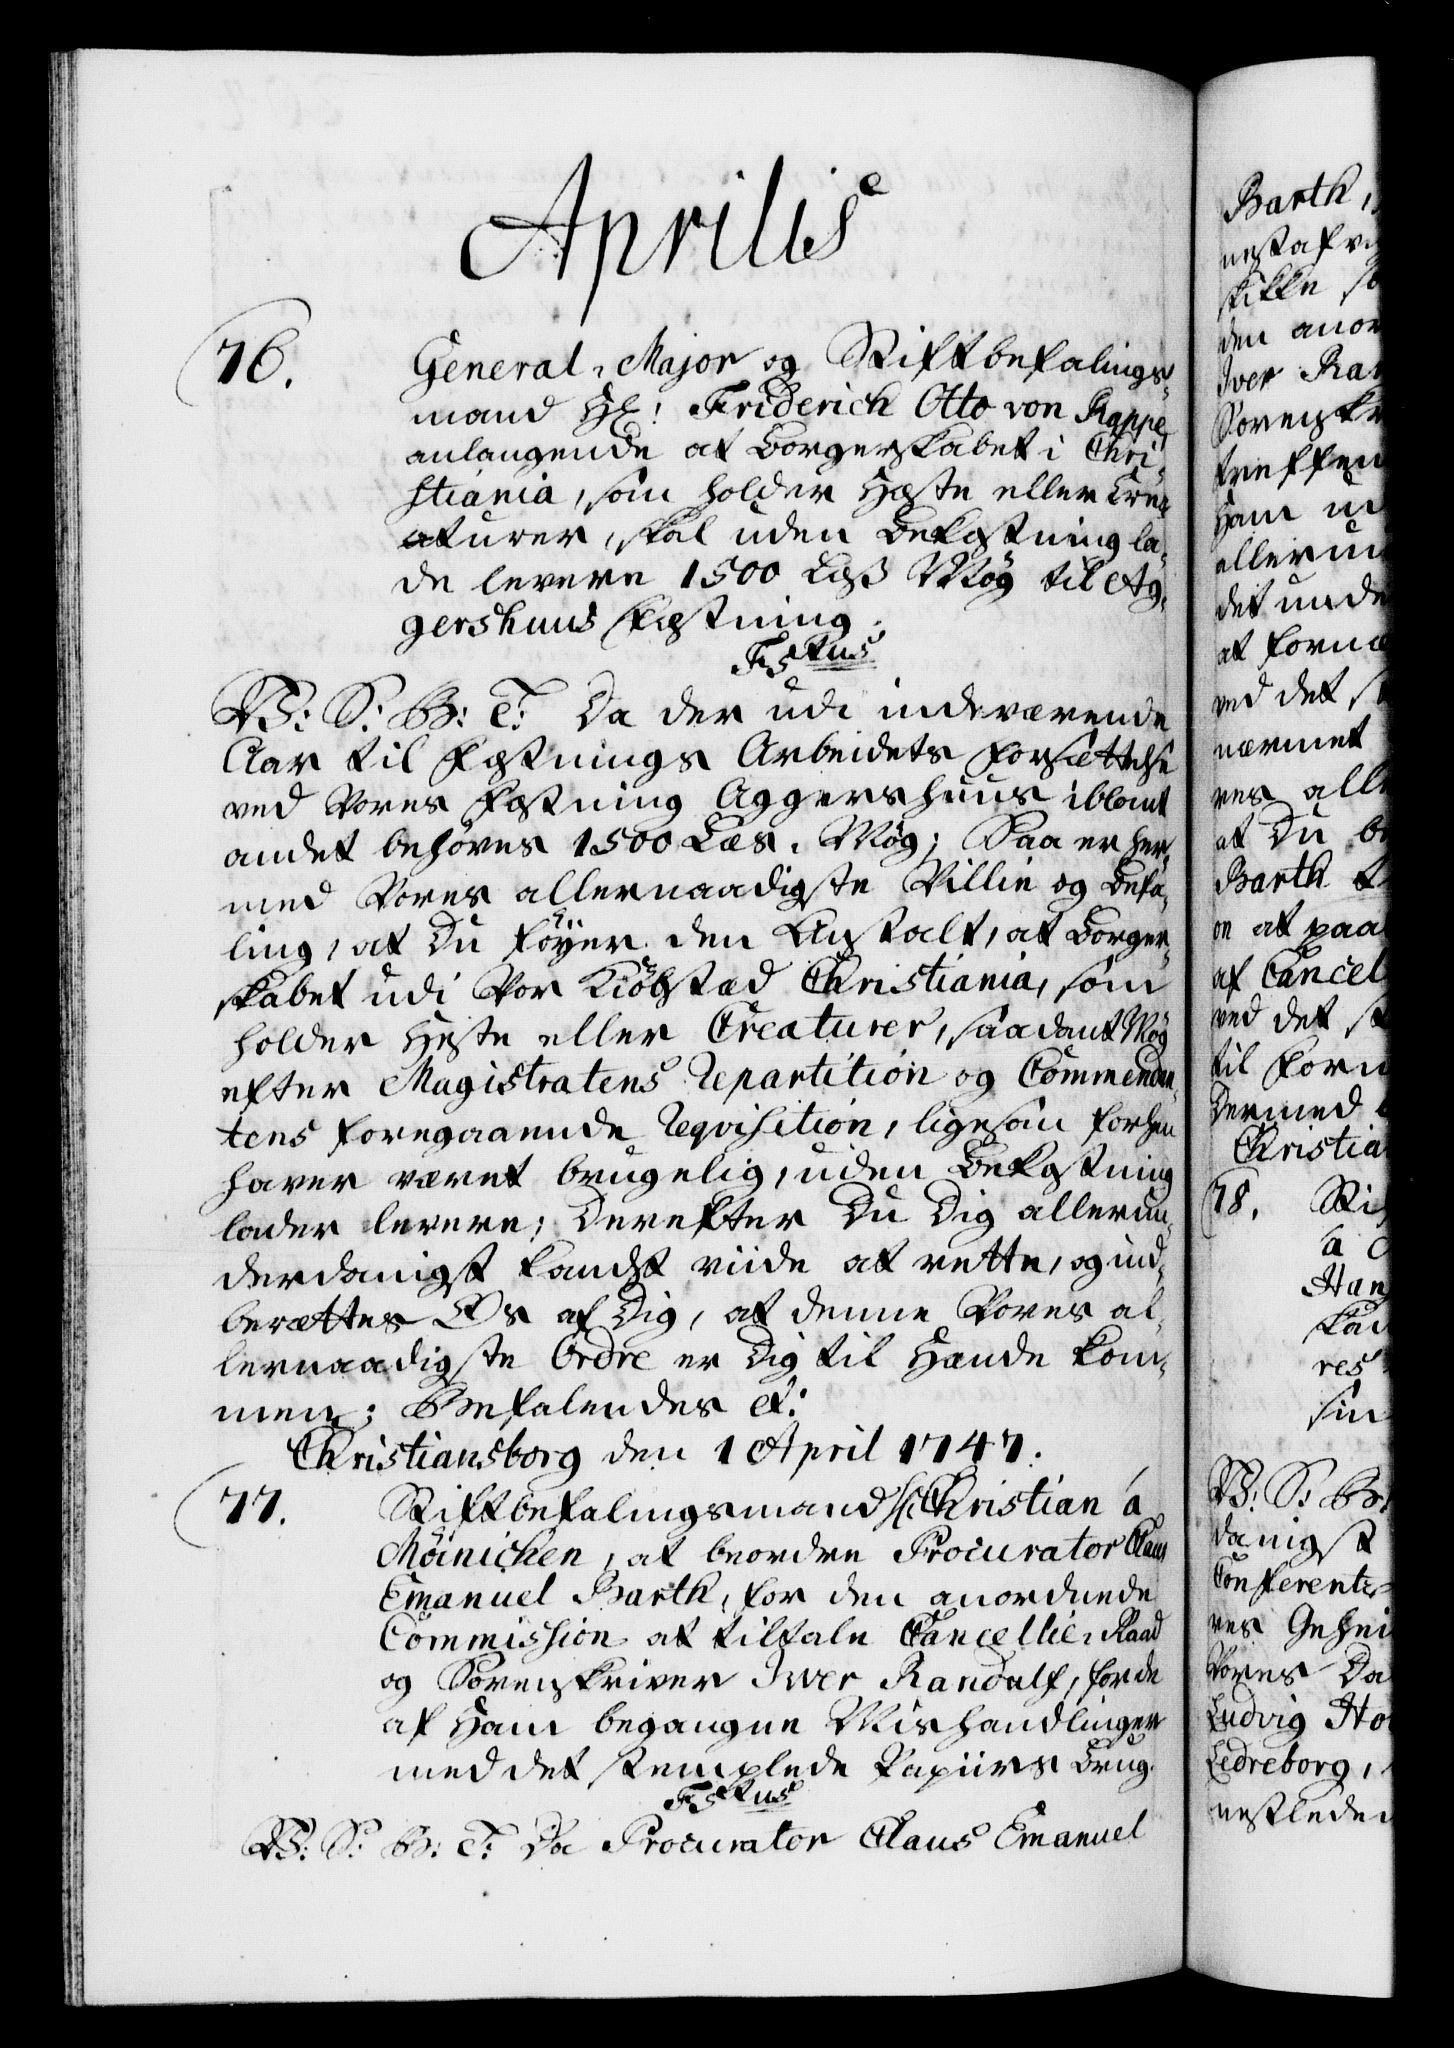 Aprilis
76.
General-Major og Stiftbefalings-
mand Hr: Friderich Otto von Rappe
anlangende at Borgerskabet i Chri-
stiania, som holder Hæste eller Crea-
aturer, skal uden Bekostning la-
de levere 1500 Læss Møg til Ag-
gershuus Fæstning.
Fiskus
V: S: G: T: Da der udi indeværende
Aar til Fæstnings Arbeidets Forsættelse
ved Vores Fæstning Aggershuus iblant
andet behøves 1500 Læs. Møg; Saa er her-
med Vores allernaadigste Villie og Befa-
ling, at Du føyer den Anstalt, at Borger-
skabet udi Vor Kiöbstæd Christiania, som
holder Heste eller Creaturer, saadant Møg
efter Magistratens Repartition og Commendan-
tens foregaaende Reqvisition, ligesom forhen
haver været brugelig, uden Bekostning
lader levere; Derefter Du Dig allerun-
derdanigst kandst viide at rette, og ind-
berettes Os af Dig, at denne Vores al-
lernaadigste Ordre er Dig til Hænde kom-
men; Befalendes et:
Christiansborg den 1 April 1747.
77.
Stiftbefalingsmand Hr Christian á
Möinichen, at beordre Procurator Claus
Emanuel Barth, for den anordnede
Commission at tiltale Cancellie-Raad
og Sorenskriver Iver Randulf, for de
af Ham begangne Mishandlinger
med det stemplede Papiirs Brug.
Fiskus
V: S: G: T: Da Procurator Claus Emanuel
Barth,
skikke
den anor
Iver Ran
Sorenskr
treffen
Ham
allerun
det unde
at forn
ved det
nærmet
res alle
at Du be
Barth
on at paa
af Cancel
ved det
til forn
Dermed
Christia
78. Sti
á
Han
res
sin
V: S: G:
danigst
Conferentz-
res Gehei
Vores Da
Ludvig Hol
Ledreborg,